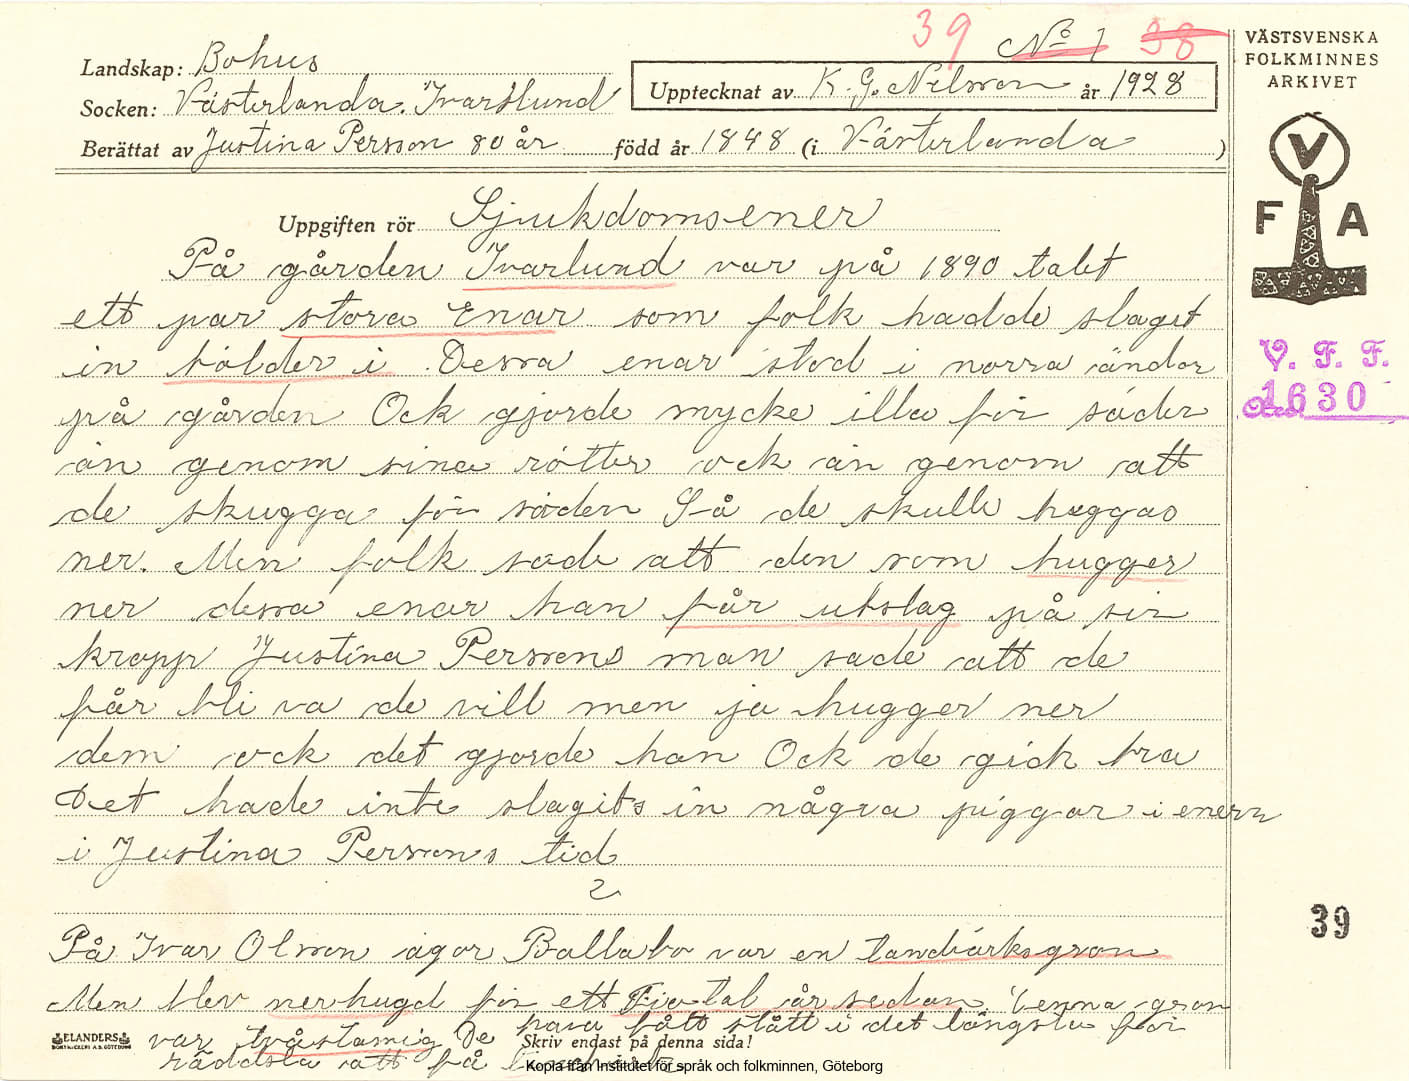 39 No 1 38
Landskap: Bohus
Socken: Västerlanda. Ivarslund
Upptecknat av K. G. Nilsson år 1928
Berättat av Justina Persson 80 år född år 1848 (i Västerlanda)
VÄSTSVENSKA
FOLKMINNES
ARKIVET
V
F A
Uppgiften rör Sjukdomsener
På gården Ivarlund var på 1890 talet
ett par stora Enar som folk hadde slaget
in bölder i. Dessa enar stod i norra ändar
på gården Ock gjorde mycke illa för säder
än genom sina rötter ock än genom att
de skugga för säden Så de skulle huggas
ner. Men folk sade att den som hugger
ner dessa enar han får utslag på sin
kropp Justina Perssons man sade att de
får bli va de vill men ja hugger ner
dem ock det gjorde han Ock de gick bra
Det hade inte slagits in några piggar i enern
i Justina Perssons tid
V. F. F.
1630
2
39
På Ivar Olsson ägor Ballabo var en tandvärksgran
Men blev nerhugd för ett Fio-tal år sedan Denna gran
var tvåstamig De hava fått stått i det längsta för
räddsla att få
ELANDERS
BOKTRYCKERI A.B. GÖTEBORG
Skriv endast på denna sida!
Kopia från Institutet för språk och folkminnen, Göteborg